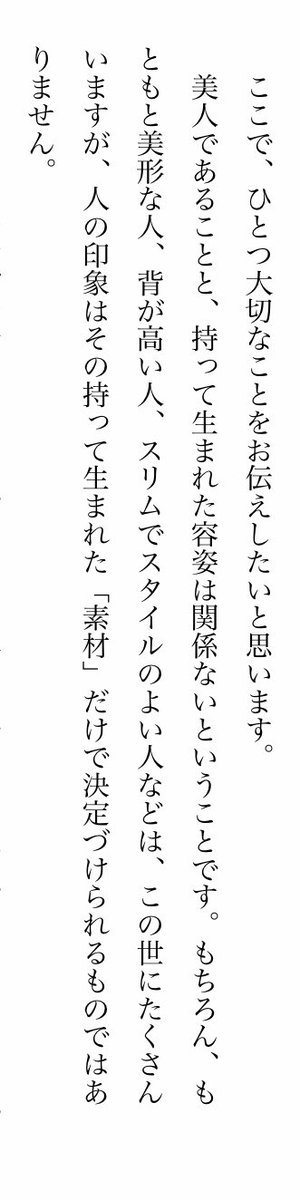 ここで、ひとつ大切なことをお伝えしたいと思います。
美人であることと、持って生まれた容姿は関係ないということです。もちろん、も
ともと美形な人、背が高い人、スリムでスタイルのよい人などは、この世にたくさん
いますが、人の印象はその持って生まれた「素材」だけで決定づけられるものではあ
りません。